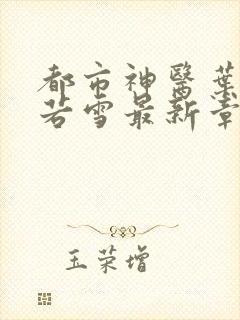 都市神醫葉
若雪最新章
玉荣增